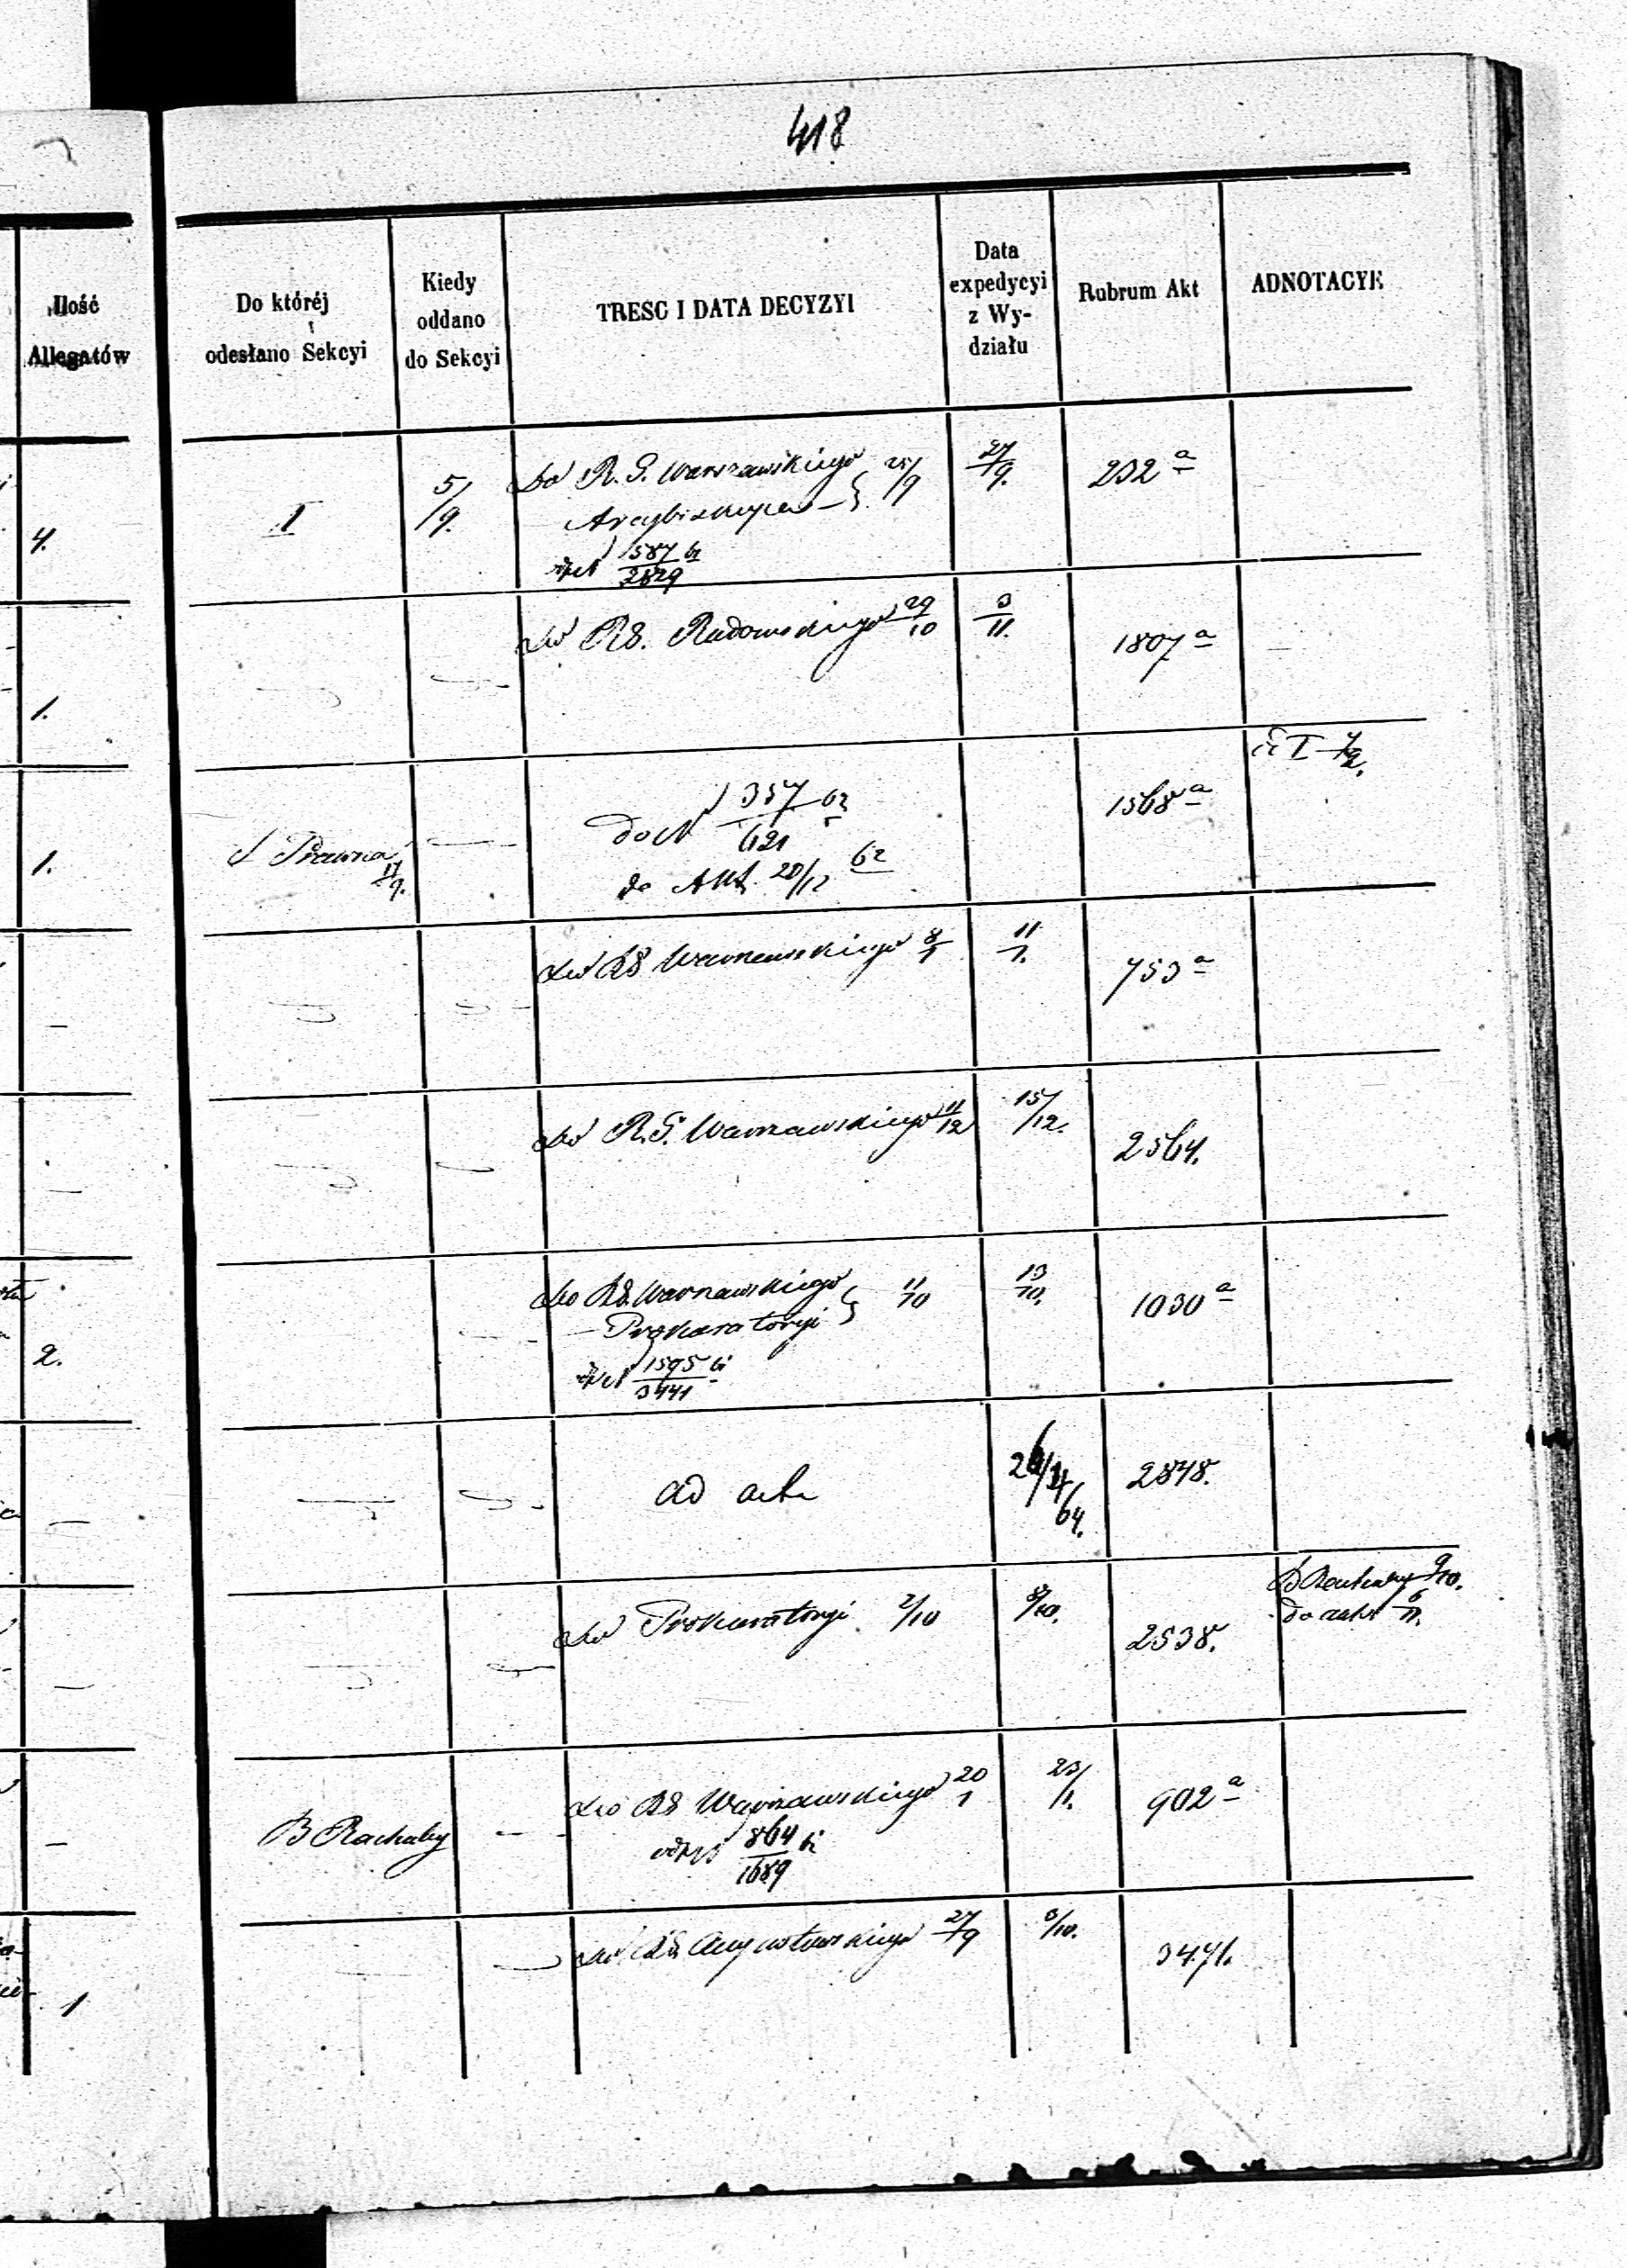 418
Ilość
Allegatów
Do któréj
odesłano Sekcyi
Kiedy
oddano
do Sekcyi
TRESC I DATA DECYZYI
Data
expedycyi
z Wy-
działu
Rubrum Akt
ADNOTACYE
4.
I
5/9.
Do R. G. Warszawskiego
Arcybiskupa
25/9
27/9.
232 a
1587
2829
1.
Do RG. Radomskiego 29/10
3/11.
1807 a
1.
S Prawna
11/9.
do N 357 62
621
do Akt 20/12 62
1568 a
Do RG Warszawskiego 8/1
11/1.
753 a
Do R. G. Warszawskiego 11/12
15/12.
2564.
2.
Do RG Warszawskiego
Prokuratoryi
11/10
13/10.
1030 a
1595
3441
ad acta
64.
2848.
Do Prokuratoryi 2/10
8/10.
2538.
B Rachuby 9/10.
do akt 6/11.
B Rachuby
Do RG Warszawskiego 20/1
23/1.
902 a
864
1689
1
Do RG Augustowskiego 27/9
3/10.
3471.